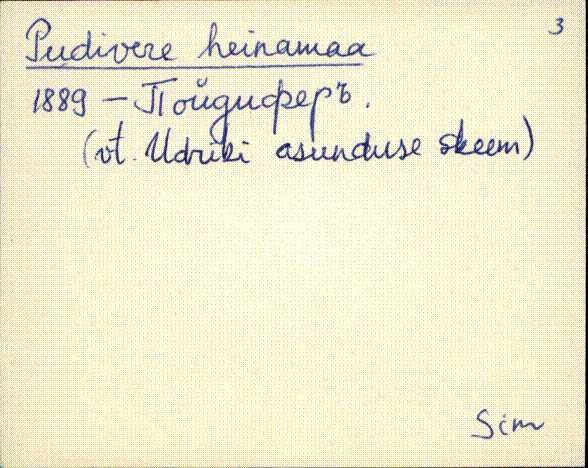 3
Pudivere heinamaa
1889 – Пойдиферъ.
(vt. Udriki asunduse skeem)
Sim